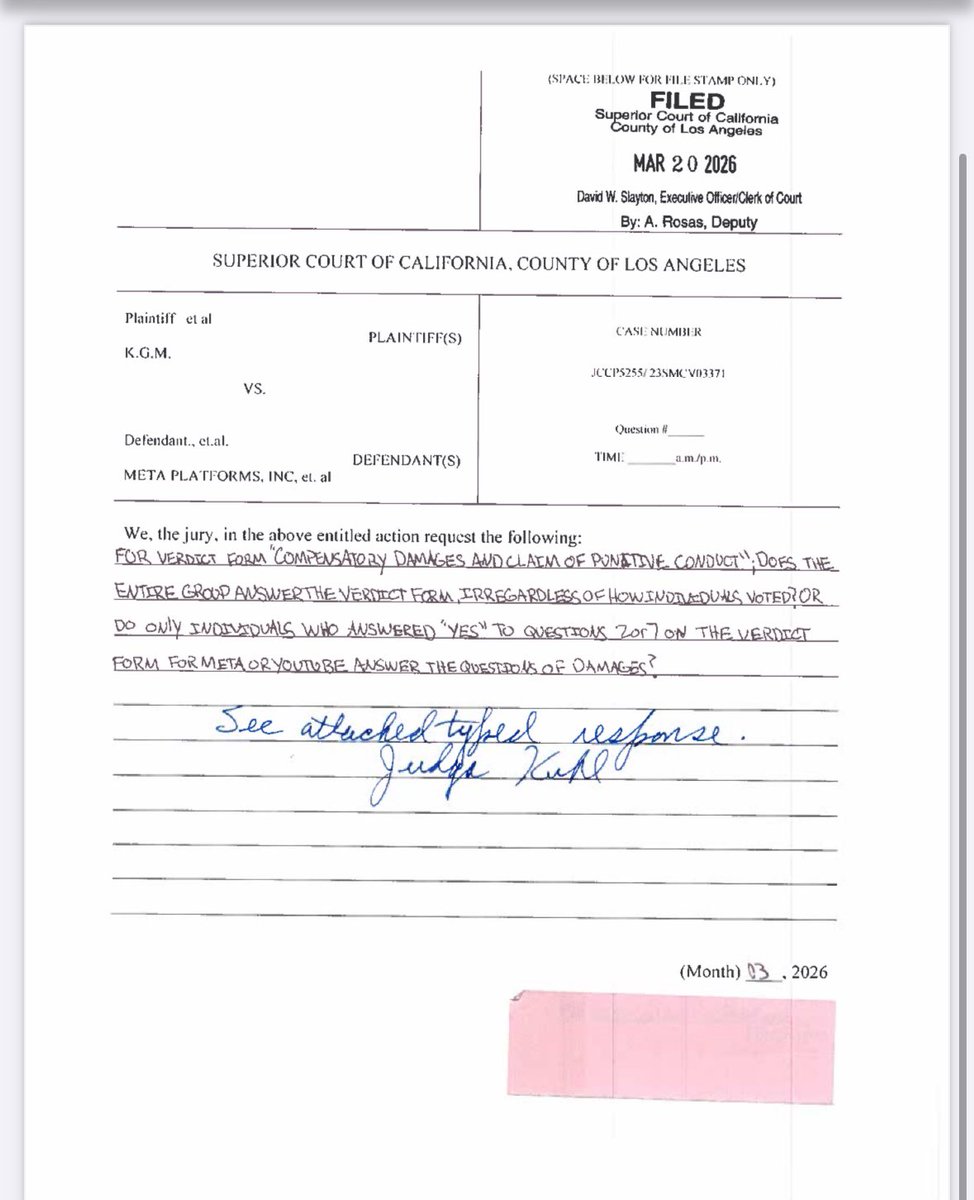 (SPACE BELOW FOR FILE STAMP ONLY)
FILED
Superior Court of California
County of Los Angeles
MAR 20 2026
David W. Slayton, Executive Officer/Clerk of Court
By: A. Rosas, Deputy
SUPERIOR COURT OF CALIFORNIA, COUNTY OF LOS ANGELES
Plaintiff et al
PLAINTIFF(S)
K.G.M.
VS.
Defendant., et.al.
DEFENDANT(S)
META PLATFORMS, INC, et. al
CASE NUMBER
JCCP5255/ 23SMCV03371
Question #______
TIME _______a.m./p.m.
We, the jury, in the above entitled action request the following:
FOR VERDICT FORM "COMPENSATORY DAMAGES AND CLAIM OF PUNATIVE CONDUCT"; DOES THE
ENTIRE GROUP ANSWER THE VERDICT FORM, IRREGARDLESS OF HOW INDIVIDUALS VOTED? OR
DO ONLY INDIVIDUALS WHO ANSWERED "YES" TO QUESTIONS 2 or 7 ON THE VERDICT
FORM FOR META OR YOUTUBE ANSWER THE QUESTIONS OF DAMAGES?
See attached typed response.
Judge Kuhl
(Month) 03, 2026